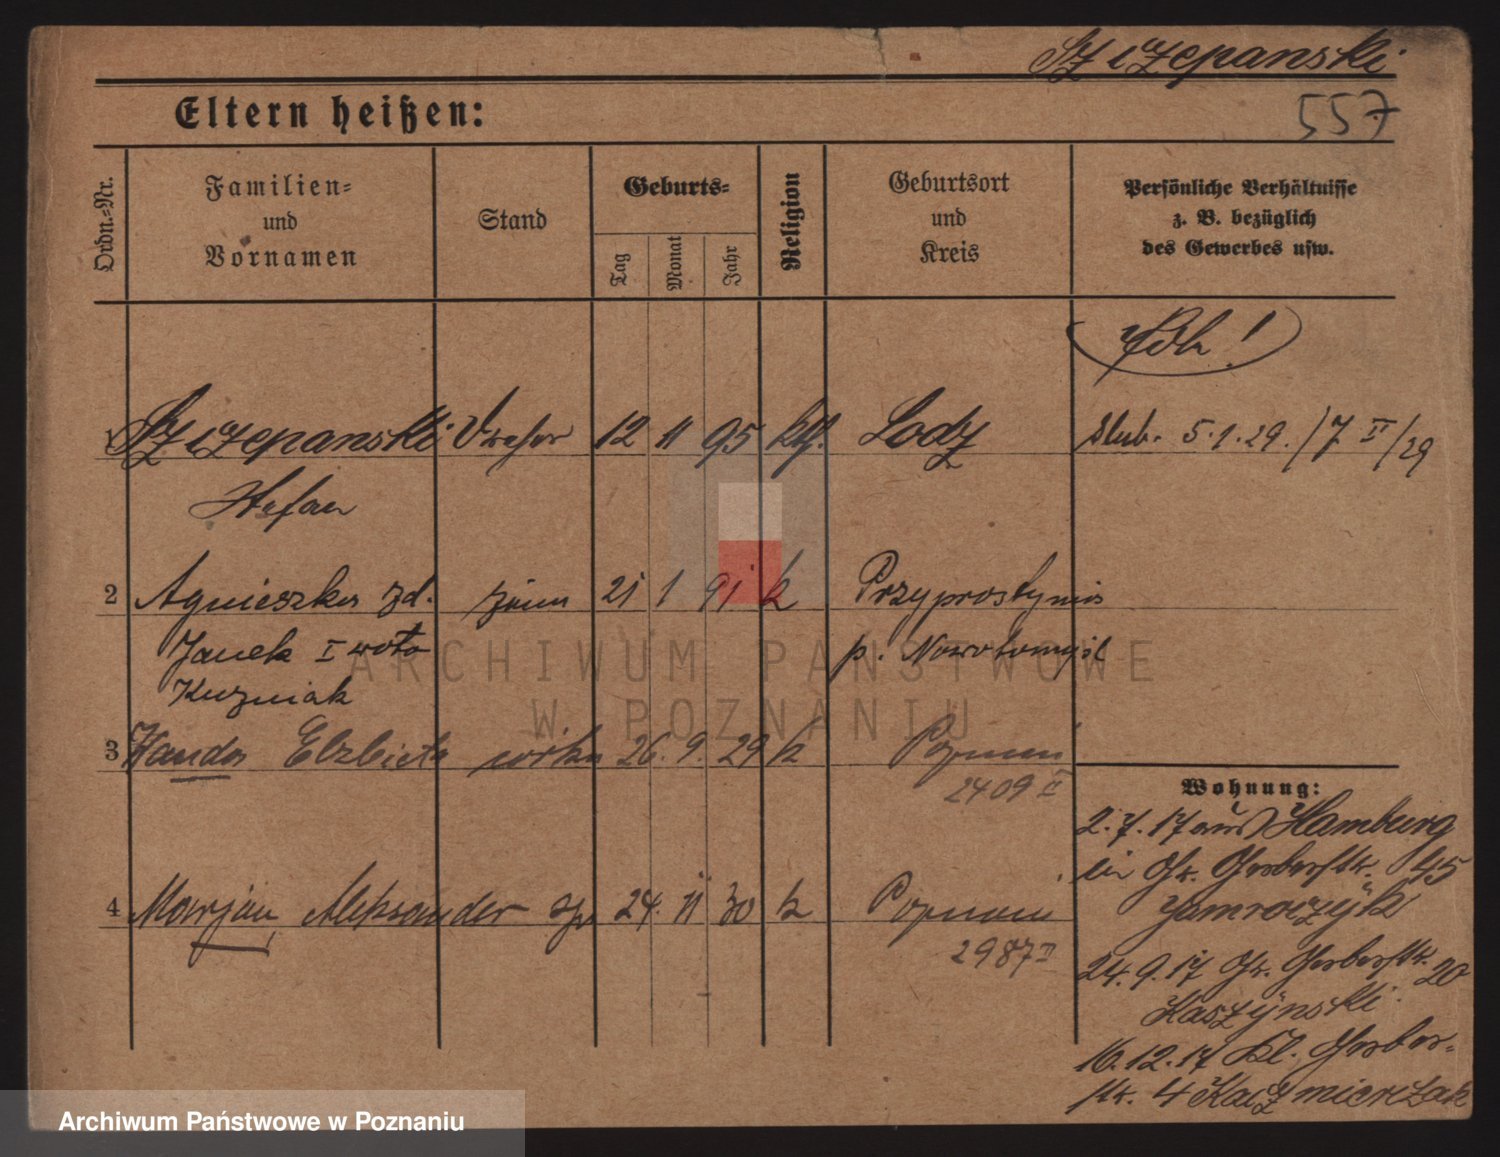 Szczepanski
Eltern heißen:
557
Ordn.-Nr.
Familien-
und
Vornamen
Stand
Geburts-
Tag
Monat
Jahr
Religion
Geburtsort
und
Kreis
Persönliche Verhältnisse
z. B. bezüglich
des Gewerbes usw.
1 Szczepanski 12 11 95 kth. Lodz ślub. 5.1.29. / 7 II / 29
Stefan
2 Agnieszka zd. żona 21 1 91 k Przyprostynia
Janek I woto p. Nowotomyśl
Kuzniak
3 Wanda Elzbieta córka 26. 9. 29 k Poznań
2409 II
Wohnung:
2.7.17 aus Hamburg
in Gr. Gerberstr. 45
4 Marjan, Aleksander syn 24. 11 30 k Poznań
2987 II
24.9.17 Gr. Gerberstr. 20
Kaszÿnski
16.12.17 Kl. Gerber-
str. 4 Kaczmierczak
ARCHIWUM PAŃSTWOWE
W POZNANIU
Archiwum Państwowe w Poznaniu